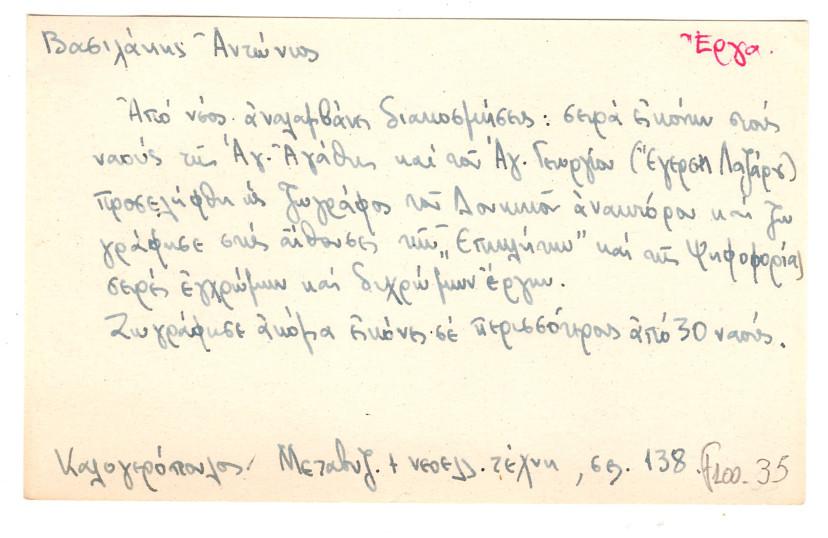 Βασιλάκης Ἀντώνιος
Ἔργα.
Ἀπό νέος ἀναλαμβάνει διακοσμήσεις: σειρά εἰκόνων στούς
ναούς τῆς Ἁγ. Ἀγάθης καί τοῦ Ἁγ. Γεωργίου (Ἔγερση Λαζάρου)
Προσελήφθη ὡς ζωγράφος τοῦ Δουκικοῦ ἀνακτόρου καί ζω
γράφησε στίς αἴθουσες τῶν "Ἐπικλήτων" καί τῆς Ψηφοφορίας
σειρές ἐγχρώμων καί διχρώμων ἔργων.
Ζωγράφησε ἀκόμα εἰκόνες σέ περισσότερους ἀπό 30 ναούς.
Καλογερόπουλος: Μεταβυζ. + νεοελλ. τέχνη, σελ. 138.
35